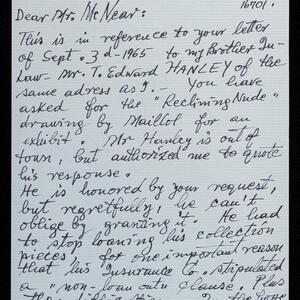 16701.
Dear Mr. McNear:
This is in reference to your letter
of Sept. 3d-1965 to my Brother In-
Law- Mr. T. Edward HANLEY of the
same adress as I.- You have
asked for the "Reclining Nude"
drawing by Maillol for an
exhibit. Mr Hanley is out of
town, but authorized me to quote
his response.
He is honored by your request,
but regretfully, he can't
oblige by granting it. He had
to stop loaning his collection
pieces, for one important reason
that his Insurance Co stipulated
a "non-loan out" clause. Plus
the